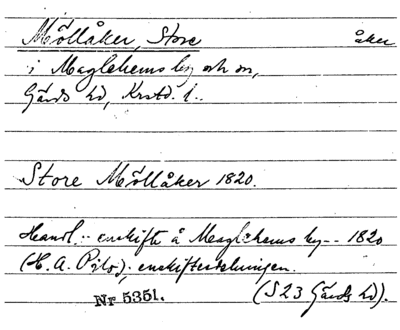 Möllåker, Store åker
i Maglehems by och sn,
Gärds hd, Krstd. l..
Store Möllåker 1820.
Handl. .. enskifte å Maglehems by -- 1820
(H. A. ); enskiftesdelningen.
Nr 5351. (S 23 Gärds hd).